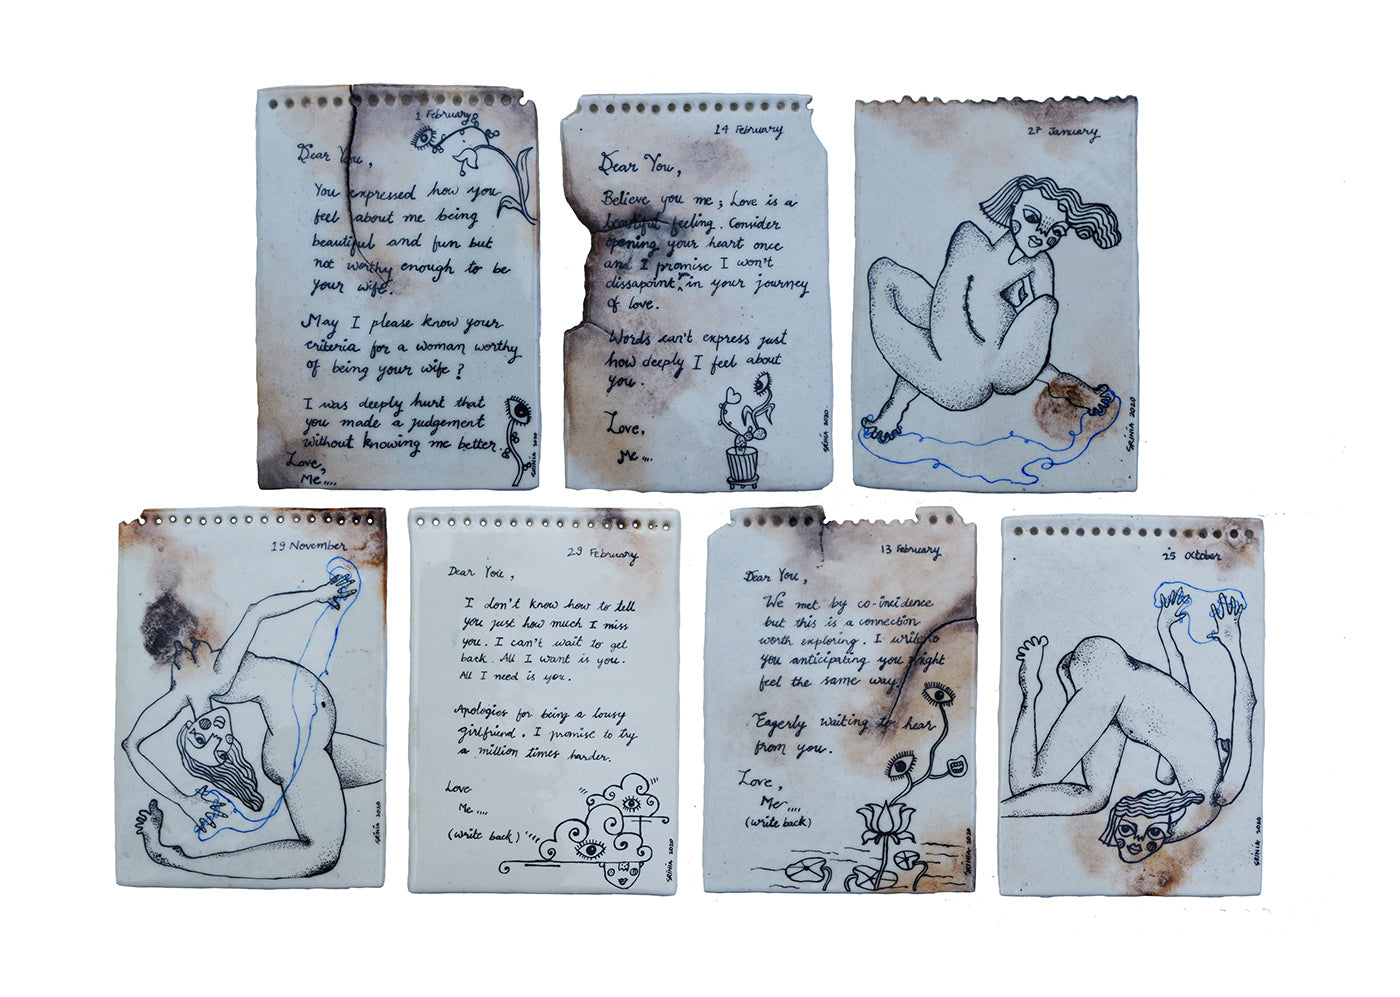 1 February
Dear You,
You expressed how you
feel about me being
beautiful and fun but
not worthy enough to be
your wife.
May I please know your
criteria for a woman worthy
of being your wife?
I was deeply hurt that
you made a judgement
without knowing me better.
Love,
Me....
SRINIA 2020
14 February
Dear You,
Believe you me; Love is a
beautiful feeling. Consider
opening your heart once
and I promise I won't
dissapoint you in your journey
of love.
Words can't express just
how deeply I feel about
you.
Love,
Me....
SRINIA 2020
27 January
SRINIA 2020
19 November
SRINIA 2020
29 February
Dear You,
I don't know how to tell
you just how much I miss
you. I can't wait to get
back. All I want is you.
All I need is you.
Apologies for being a lousy
girlfriend. I promise to try
a million times harder.
Love
Me....
(write back)
SRINIA 2020
13 February
Dear You,
We met by co-incidence
but this is a connection
worth exploring. I write to
you anticipating you might
feel the same way.
Eagerly waiting to hear
from you.
Love,
Me....
(write back)
SRINIA 2020
25 October
SRINIA 2020